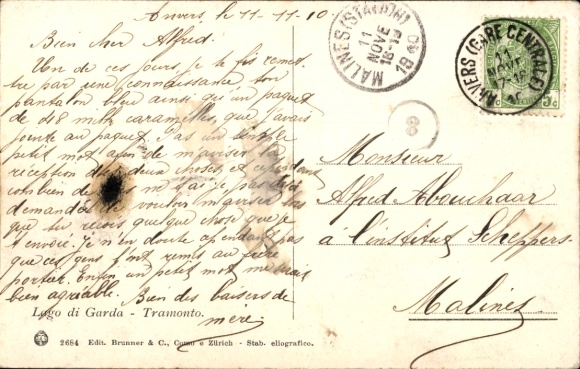 Anvers, le 11-11-10
Bien cher Alfred.
Un de ces jours, je te fis remet-
tre par une connaissance ton
pantalon bleu ainsi qu'un paquet
de 48 mille caramelles, que j'avais
jointe au paquet. Pas un simple
petit mot afin de m'aviser la
réception des deux choses, et cependant
combien de fois ne t'ai je pas déjà
demandé de vouloir m'aviser
que tu reçois quelque chose que je
t'envoie. Je n'en doute cependant pas
que ces gens l'ont remis au frère
portier. Enfin un petit mot me serait
bien agréable. Bien des baisers de
mère.
MALINES (STATION)
11
NOVE
18-19
1910
ANVERS (GARE CENTRALE)
11
NOVE
8
5c
Monsieur
Alfred Abouchaar
à l'institut Scheppers.
Malines
Lago di Garda - Tramonto.
2684 Edit. Brunner & C., Como e Zürich - Stab. eliografico.